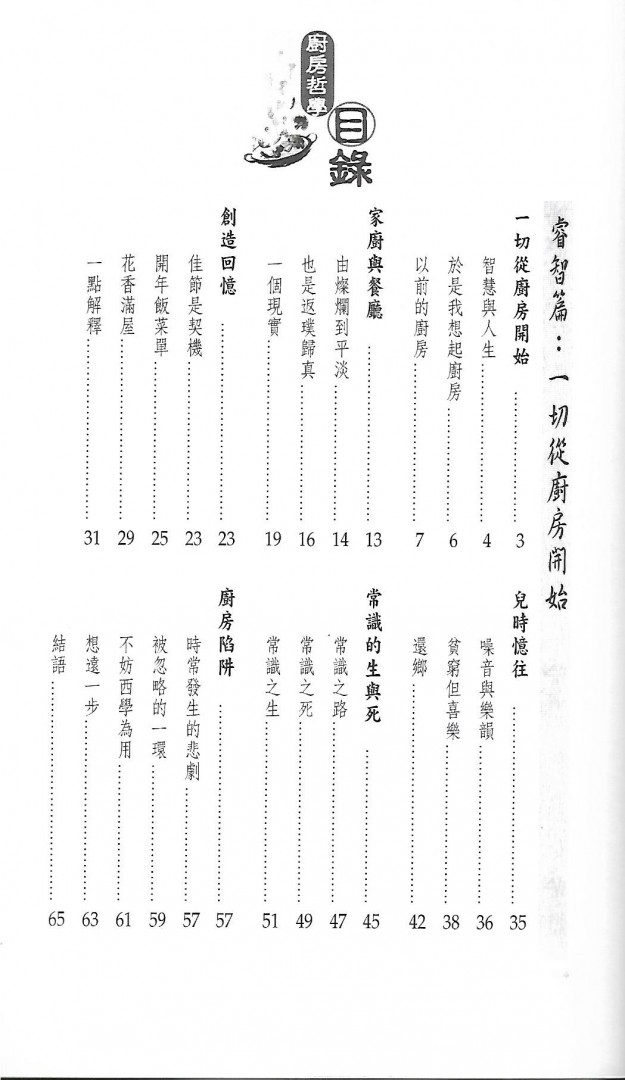 廚房哲學
目錄
睿智篇：一切從廚房開始
一切從廚房開始……………3
智慧與人生……………4
於是我想起廚房……………6
以前的廚房……………7
家廚與餐廳……………13
由燦爛到平淡……………14
也是返璞歸真……………16
一個現實……………19
創造回憶……………23
佳節是契機……………23
開年飯菜單……………25
花香滿屋……………29
一點解釋……………31
兒時憶往……………35
噪音與樂韻……………36
貧窮但喜樂……………38
還鄉……………42
常識的生與死……………45
常識之路……………47
常識之死……………49
常識之生……………51
廚房陷阱……………57
時常發生的悲劇……………57
被忽略的一環……………59
不妨西學為用……………61
想遠一步……………63
結語……………65